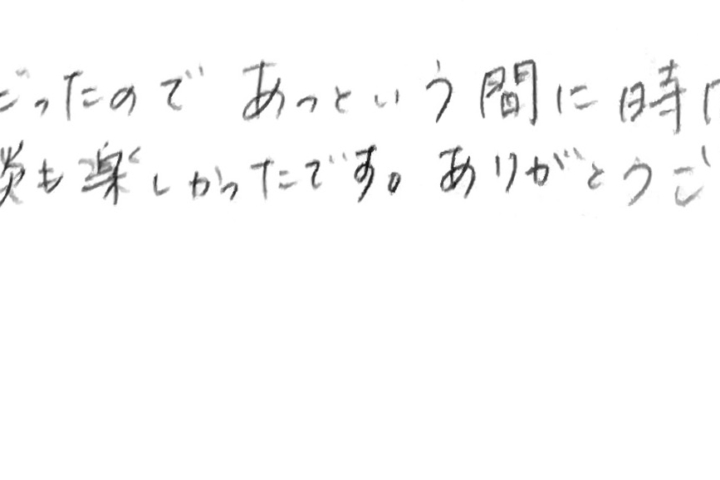 ったので あっという間に時
も楽しかったです。ありがとうご